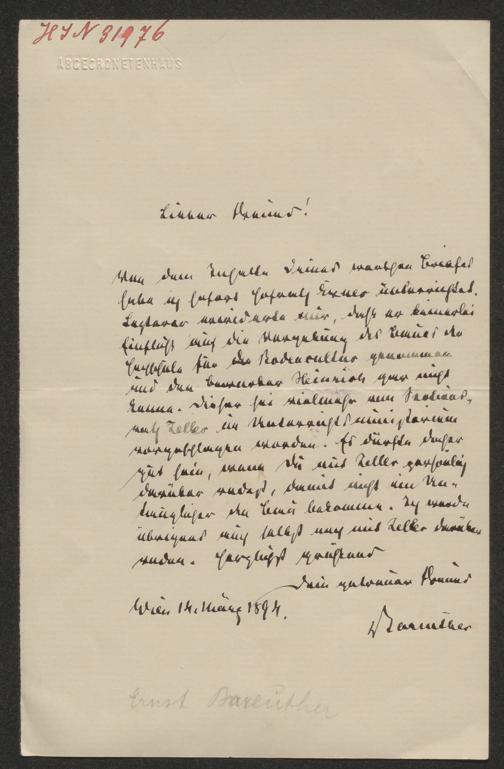 HIN 31976
ABGEORDNETENHAUS
Lieber Freund!
Von dem Inhalte Deines werthen Briefes
habe ich sofort Hofrath Exner unterrichtet.
Letzterer erwiderte mir, daß er keinerlei
Einfluß auf die Vergebung des Baues der
Hochschule für Bodencultur genommen
und den Bewerber Heinrich gar nicht
kenne. Dieser sei vielmehr von Sections-
rath Zeller im Unterrichtsministerium
vorgeschlagen worden. Es dürfte daher
gut sein, wenn Du mit Zeller persönlich
darüber redest, damit nicht ein Un-
tauglicher den Bau bekomme. Ich werde
übrigens auch selbst noch mit Zeller darüber
reden. Herzlichst grüßend
Dein getreuer Freund
Wien 14. März 1894.
Bareuther
Ernst Bareuther